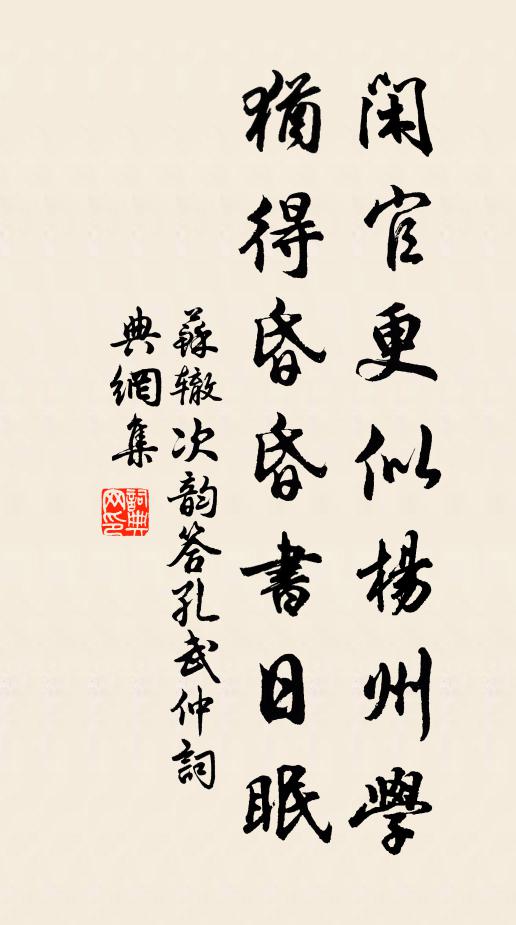 闲官更似楊州學
猶得昏昏書日眠
蘇辙次韵答孔武仲詞
典網集
詞典网印